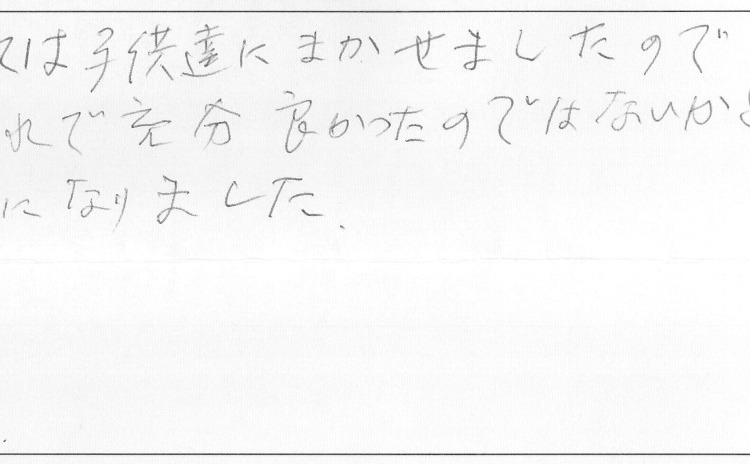 は子供達にまかせましたので
れで充分良かったのではないかと
になりました.